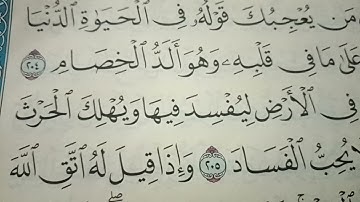 مَن يُعْجِبُكَ قَوْلُهُۥ فِى ٱلْحَيَوٰةِ ٱلدُّنْيَا
عَلَىٰ مَا فِى قَلْبِهِۦ وَهُوَ أَلَدُّ ٱلْخِصَامِ ٢٠٤
فِى ٱلْأَرْضِ لِيُفْسِدَ فِيهَا وَيُهْلِكَ ٱلْحَرْثَ
لَا يُحِبُّ ٱلْفَسَادَ ٢٠٥ وَإِذَا قِيلَ لَهُ ٱتَّقِ ٱللَّهَ